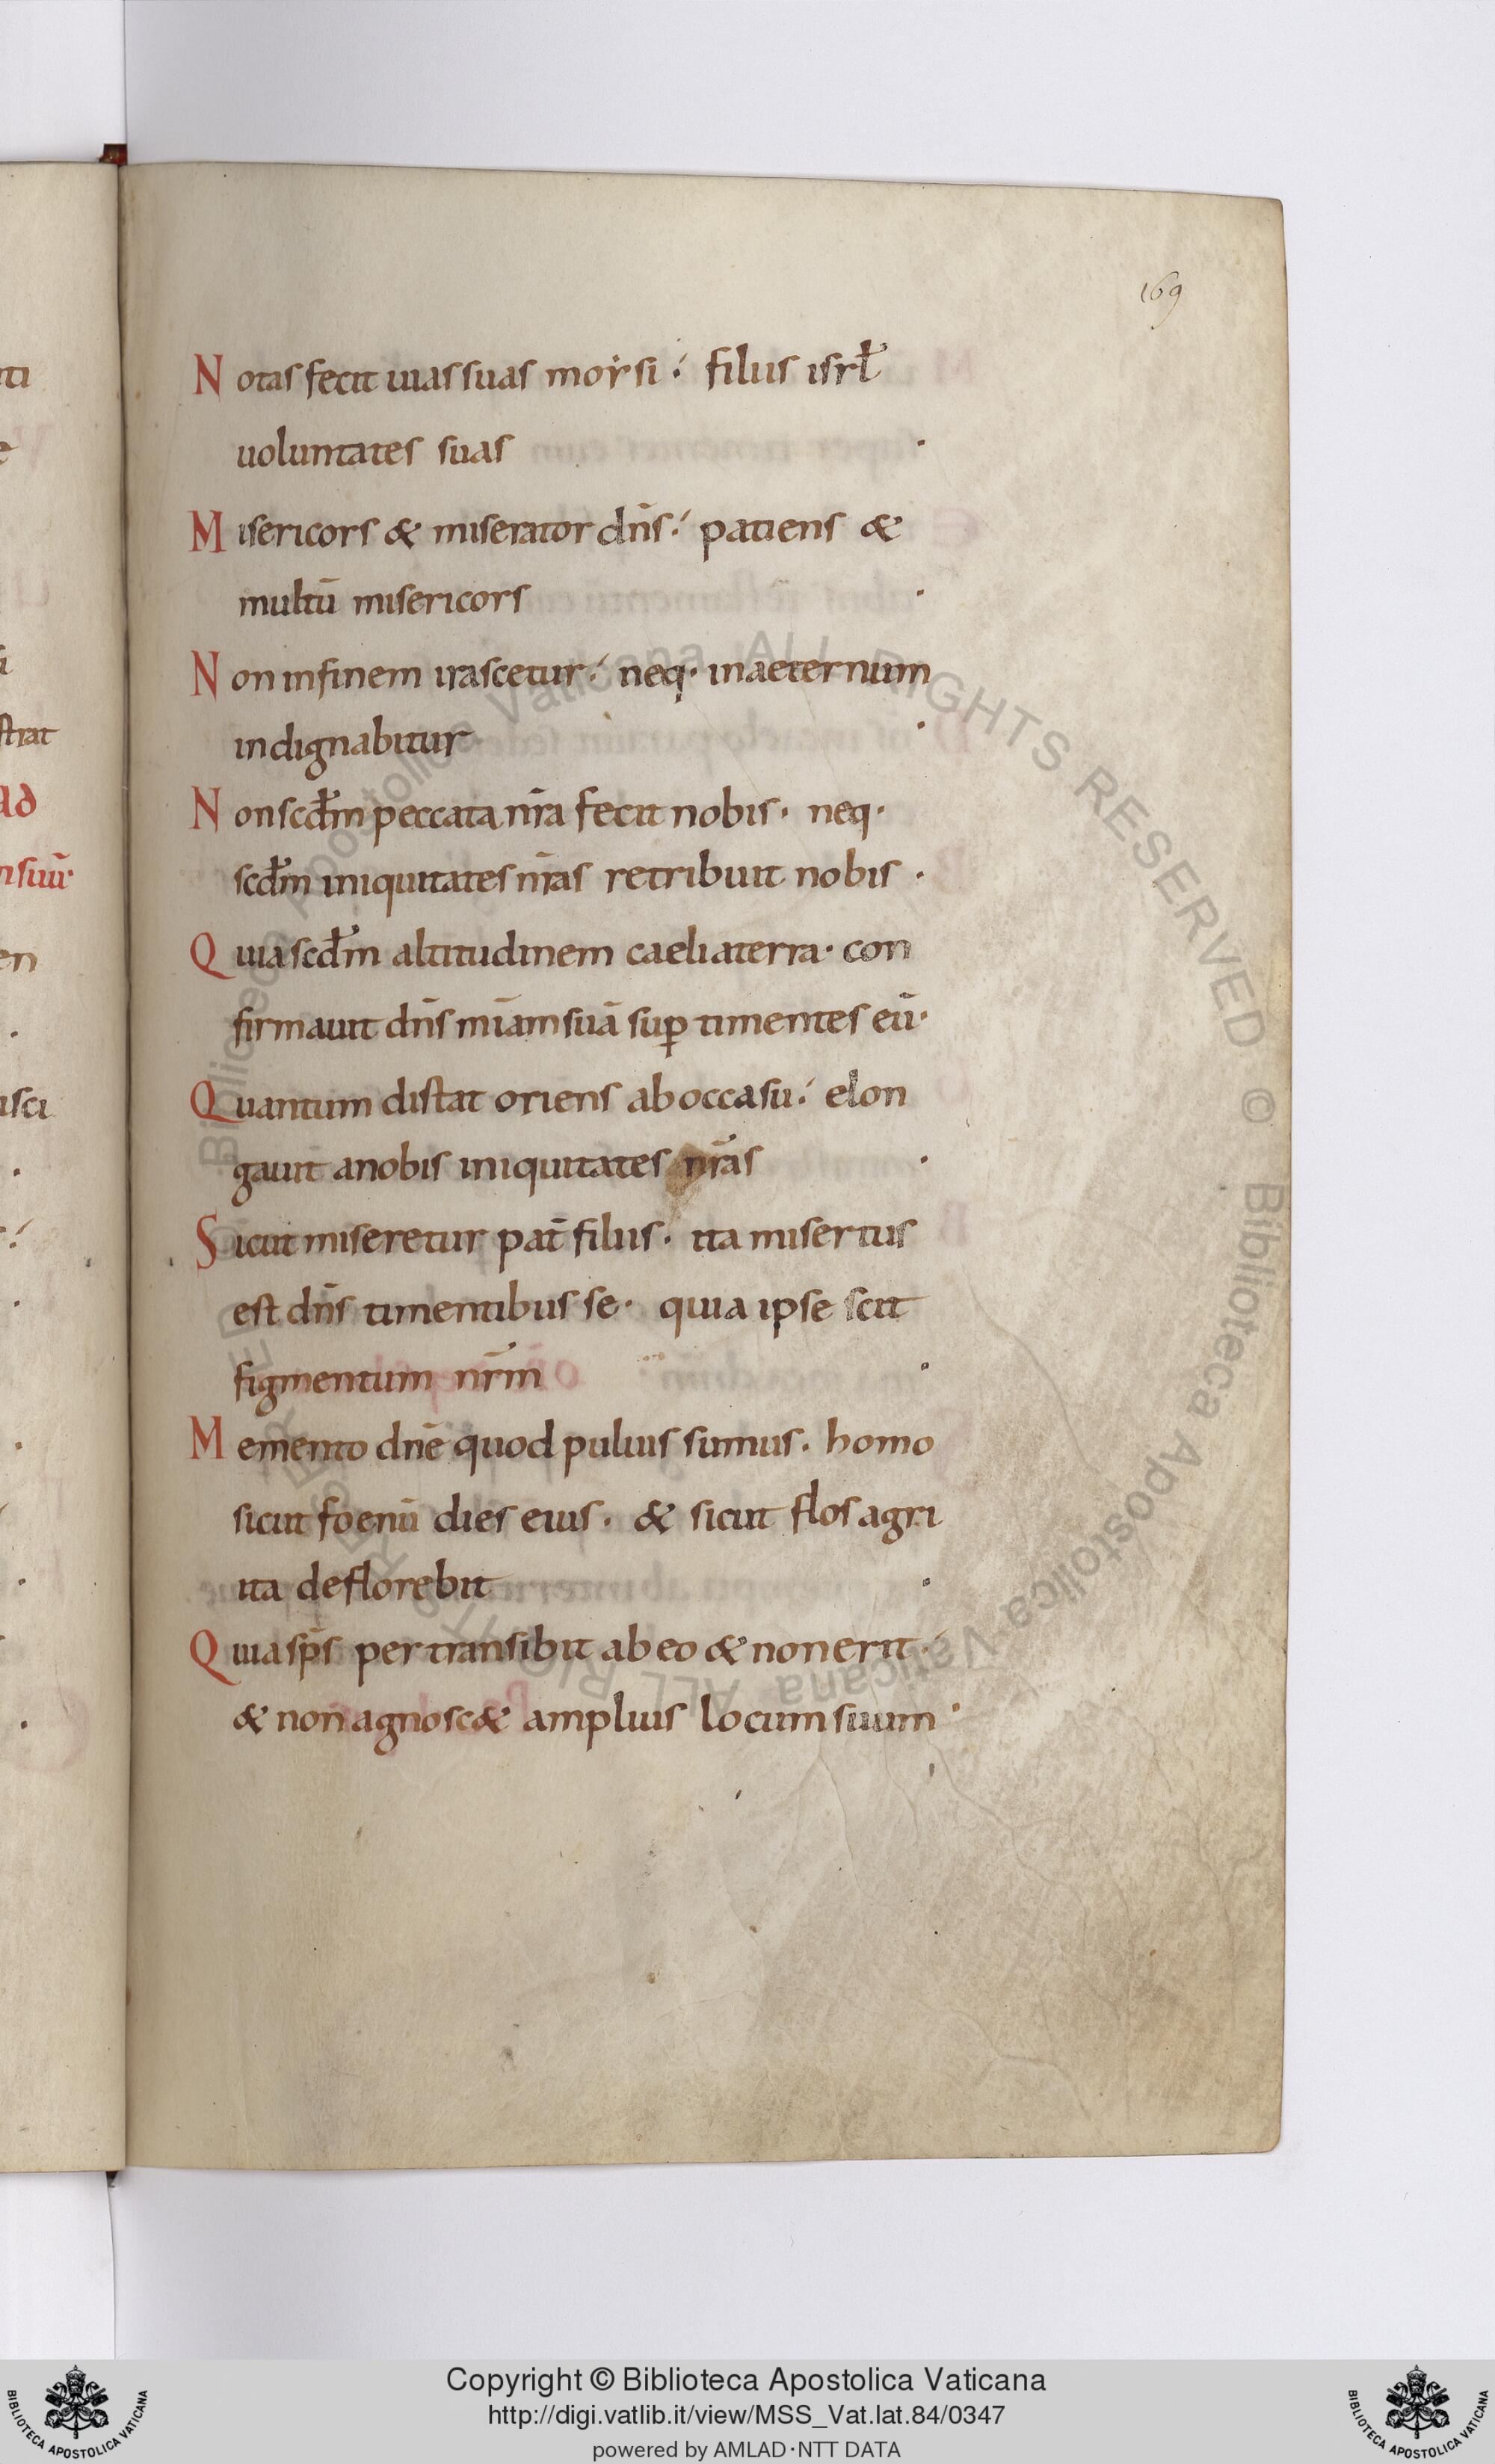 169
Notas fecit uias suas moẏsi: filiis isrł
uoluntates suas .
Misericors & miserator dn̄s: patiens &
multū misericors .
Non infinem irascetur: neq· inaeternum
indignabitur .
Non scđm peccata nr̄a fecit nobis. neq·
scđm iniquitates nr̄as retribuit nobis .
Quia scđm altitudinem caeli aterra. con
firmauit dn̄s mīam suā sup̱ timentes eū.
Quantum distat oriens ab occasu: elon
gauit anobis iniquitates nr̄as .
Sicut miseretur pat̄ filiis. ita misertus
est dn̄s timentibus se. quia ipse scit
figmentum nr̄m .
Memento dnē quod puluis sumus. homo
sicut foenū dies eius. & sicut flos agri
ita deflorebit .
Quia sp̄s pertransibit ab eo & non erit:
& non agnosc& amplius locum suum .
ti
e
i
strat
ad
nsuū·
en
.
usci
.
:
.
Biblioteca Apostolica Vaticana ALL RIGHTS RESERVED ©
Biblioteca Apostolica Vaticana ALL RIGHTS RESERVED ©
BIBLIOTECA APOSTOLICA VATICANA
Copyright © Biblioteca Apostolica Vaticana
http://digi.vatlib.it/view/MSS_Vat.lat.84/0347
powered by AMLAD·NTT DATA
BIBLIOTECA APOSTOLICA VATICANA